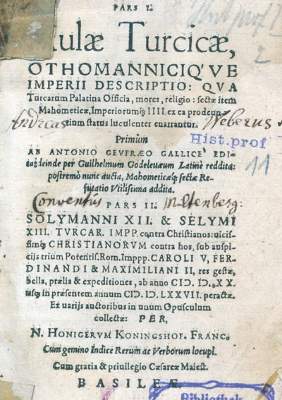 PARS I.
Aulæ Turcicæ,
OTHOMANNICIQ'VE
IMPERII DESCRIPTIO: QVA
Turcarum Palatina Officia, mores, religio: sectæ item
Mahometicæ, Imperiorumq; IIII. ex ea prodeun
tium status luculenter enarrantur.
Weberus
Primùm
Hist. prof
11
AB ANTONIO GEVFRÆO GALLICE EDI
ta: deinde per Guilhelmum Godeleuæum Latinè reddita:
postremò nunc aucta, Mahometicæq; sectæ Re-
futatio Vtilissima addita.
Conventus
PARS II.
SOLYMANNI XII. & SELYMI
XIII. TVRCAR. IMPP. contra Christianos: vicis-
simq; CHRISTIANORVM contra hos, sub auspi-
cijs trium Potentiss. Rom. Imppp. CAROLI V, FER-
DINANDI & MAXIMILIANI II, res gestæ,
bella, prælia & expeditiones, ab anno CIↃ. IↃ. XX.
usq; in præsentem annum CIↃ. IↃ. LXXVII. peractæ.
Et varijs auctoribus in unum Opusculum
collectæ: PER,
N. HONIGERVM KONINGSHOF. FRANC.
Cum gemino Indice Rerum ac Verborum locupl.
Cum gratia & priuilegio Cæsareæ Maiest.
BASILEÆ.
Bibliothek